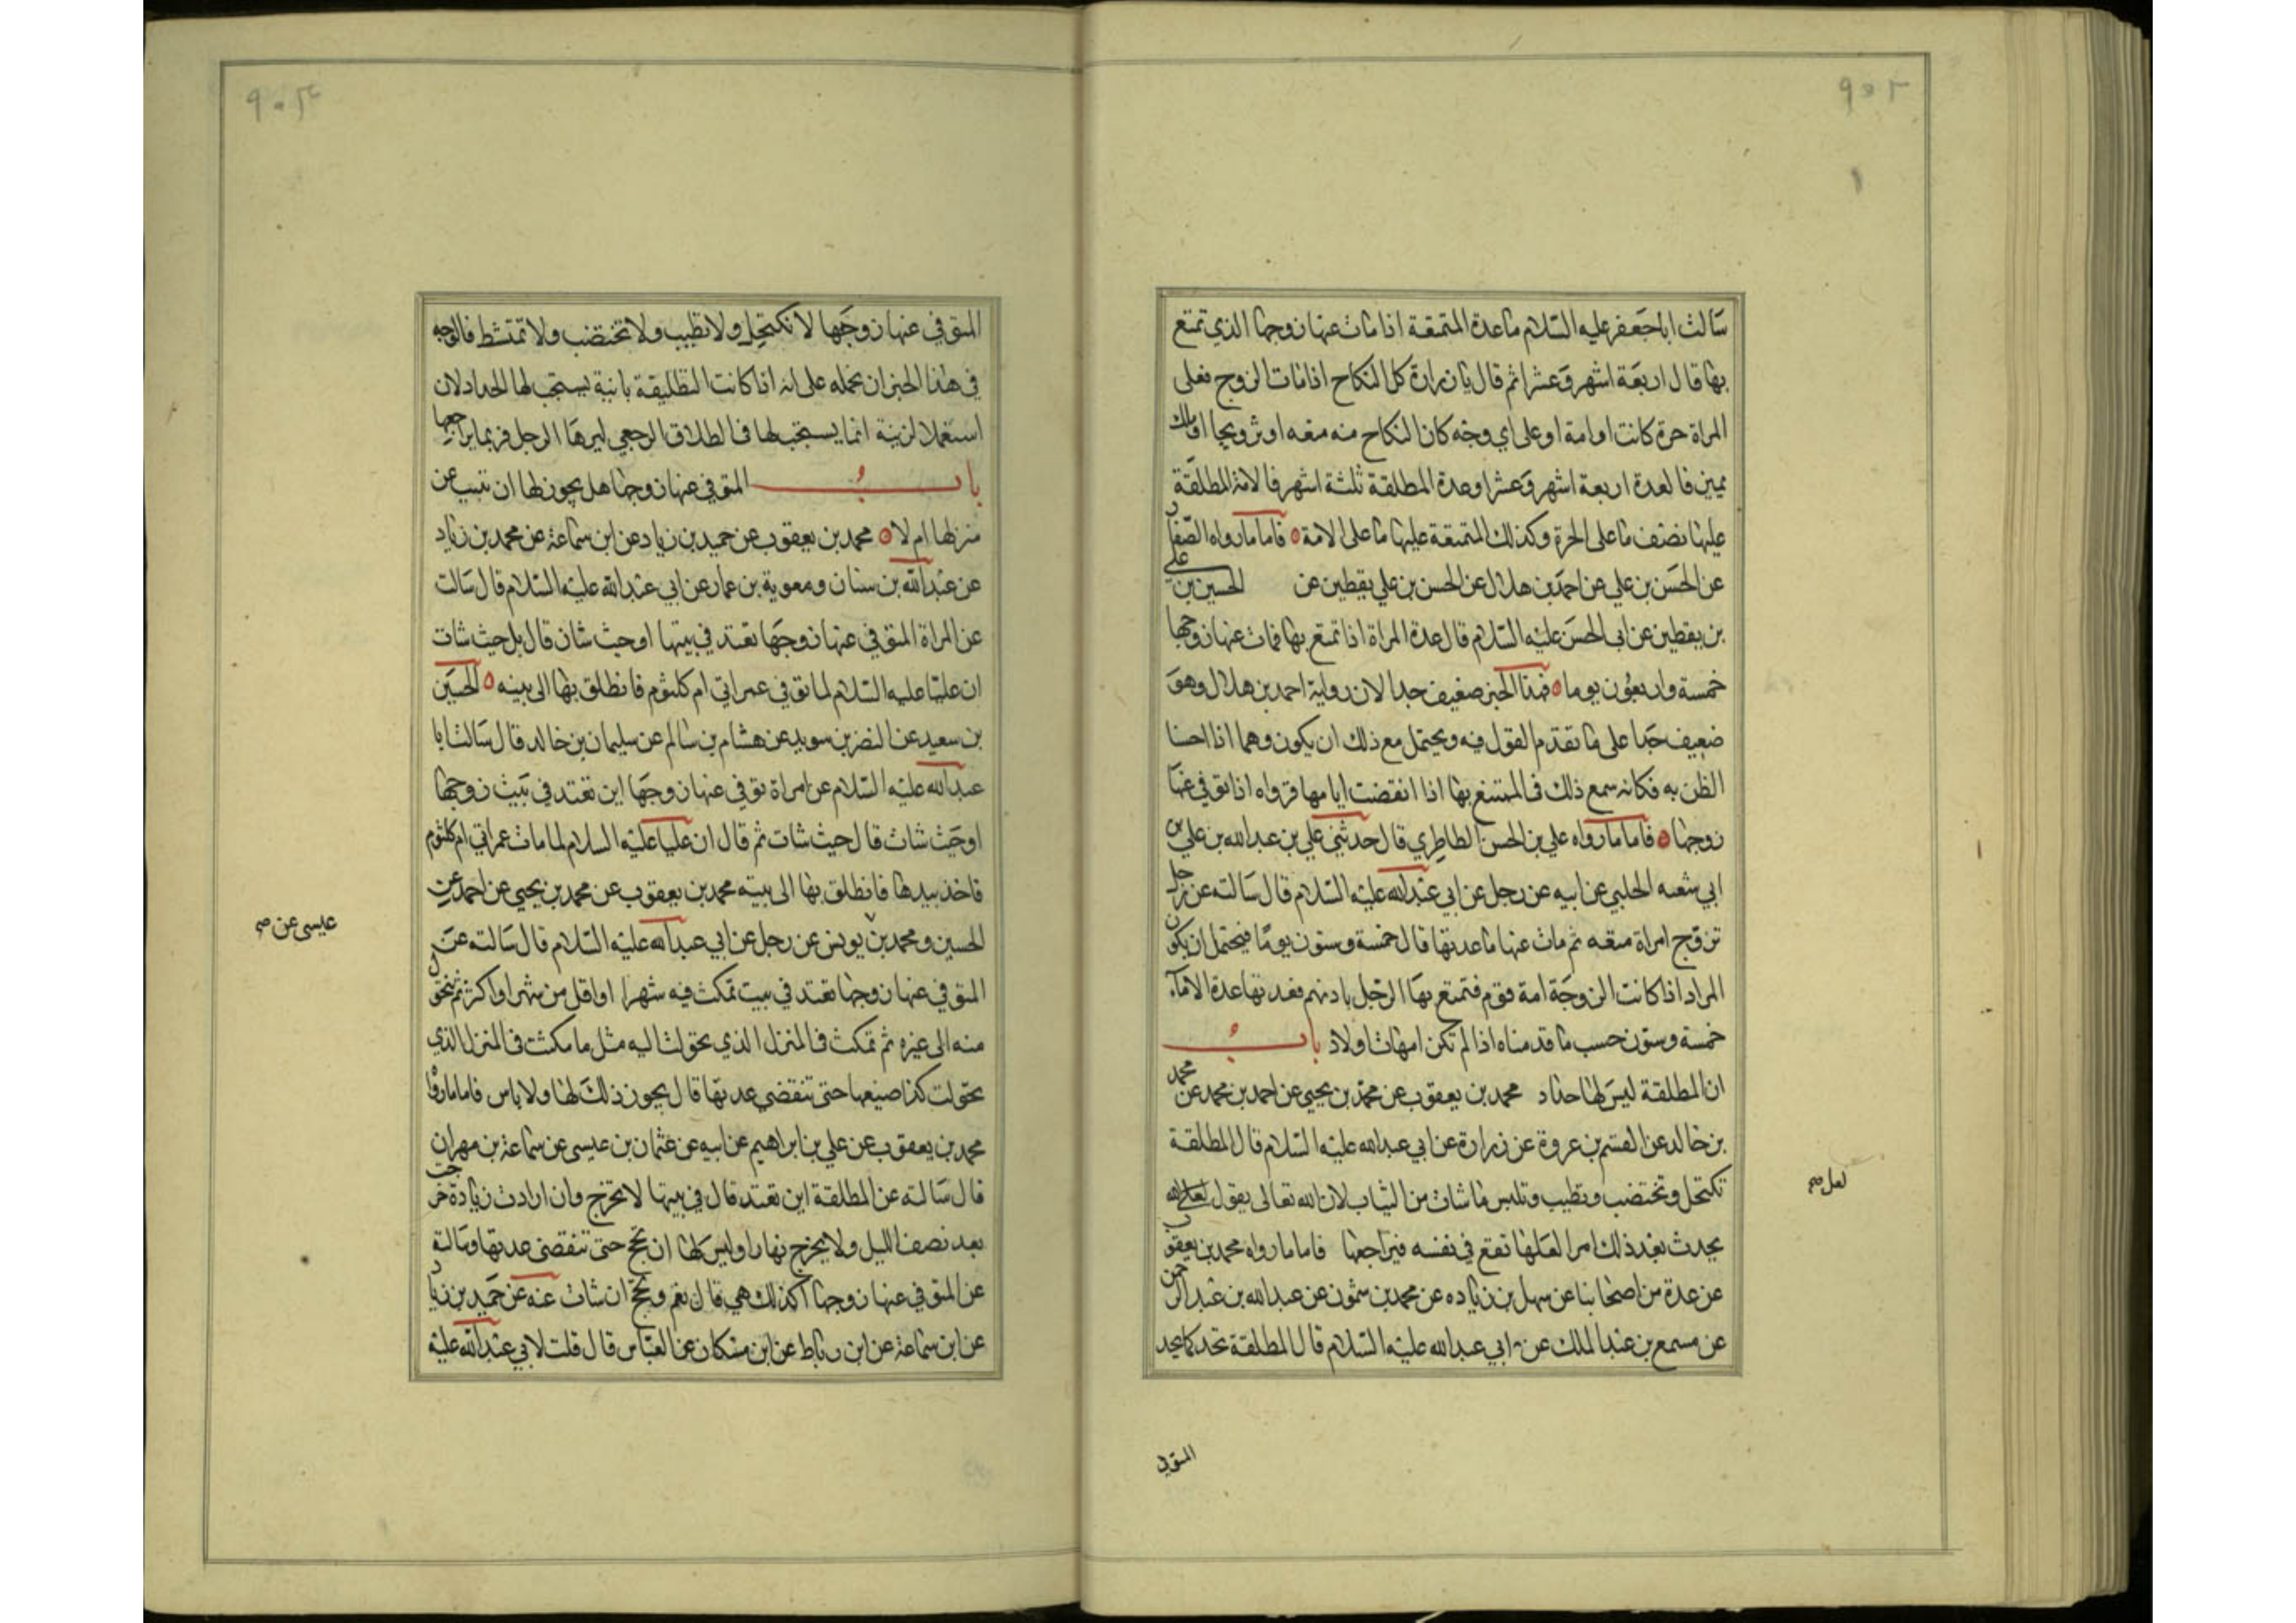 ٩٠٢
سالت ابا جعفر عليه السلام ما عدة المتمتعة اذا مات عنها زوجها الذي تمتع
بها قال اربعة اشهر وعشرا ثم قال يا زرارة كل النكاح اذا مات الزوج فعلى
المراة حرة كانت او امة او على اي وجه كان النكاح منه متعة او تزويجا او ملك
يمين فالعدة اربعة اشهر وعشرا وعدة المطلقة ثلثة اشهر فالامة المطلقة
عليها نصف ما على الحرة وكذلك المتمتعة عليها ما على الامة ٥ فاما ما رواه الصفار
عن الحسن بن علي عن احمد بن هلال عن الحسن بن علي يقطين عن الحسين بن علي
بن يقطين عن ابي الحسن عليه السلام قال عدة المراة اذا تمتع بها فمات عنها زوجها
خمسة واربعون يوما ٥ فهذا الخبر ضعيف جدا لان رواية احمد بن هلال وهو
ضعيف جدا على ما تقدم القول فيه ويحتمل مع ذلك ان يكون وهما اذا احسنا
الظن به فكانه سمع ذلك في المتمتع بها اذا انقضت ايامها فرواه اذا توفي عنها
زوجها ٥ فاما ما رواه علي بن الحسن الطاطري قال حدثني علي بن عبد الله بن علي بن
ابي شعبه الحلبي عن ابيه عن رجل عن ابي عبد الله عليه السلام قال سالته عن رجل
تزوج امراة متعه ثم مات عنها ما عدتها قال خمسة وستون يوما فيحتمل ان يكون
المراد اذا كانت الزوجة امة قوم فتمتع بها الرجل باذنهم فعدتها عدة الاماء
خمسة وستون حسب ما قدمناه اذا لم تكن امهات اولاد باب
ان المطلقة ليس لها حداد محمد بن يعقوب عن محمد بن يحيى عن احمد بن محمد عن محمد
بن خالد عن القسم بن عروة عن زرارة عن ابي عبد الله عليه السلام قال المطلقة
تكتحل وتختضب وتطيب وتلبس ما شات من الثياب لان الله تعالى يقول لعل الله
يحدث بعد ذلك امرا لعلها تقع في نفسه فيراجعها فاما ما رواه محمد بن يعقوب
عن عدة من اصحابنا عن سهل بن زياده عن محمد بن شمون عن عبد الله بن عبد الرحمن
عن مسمع بن عبد الملك عن ابي عبد الله عليه السلام قال المطلقة تحد كما يحد
لعل صح
المتوفى
٩٠٣
المتوفى عنها زوجها لا تكتحل ولا تطيب ولا تختضب ولا تمتشط فالوجه
في هذا الخبر ان نحمله على انه اذا كانت التطليقة باينة يستحب لها الحداد لان
استعمال الزينة انما يستحب لها في الطلاق الرجعي ليرها الرجل فربما يراجعها
باب المتوفى عنها زوجها هل يجوز لها ان تبيت عن
منزلها ام لا ٥ محمد بن يعقوب عن حميد بن زياد عن ابن سماعة عن محمد بن زياد
عن عبد الله بن سنان ومعوية بن عمار عن ابي عبد الله عليه السلام قال سالت
عن المراة المتوفى عنها زوجها تعتد في بيتها او حيث شات قال بل حيث شات
ان عليا عليه السلام لما توفي عمر اتى ام كلثوم فانطلق بها الى بيته ٥ الحسين
بن سعيد عن النضر بن سويد عن هشام بن سالم عن سليمان بن خالد قال سالت ابا
عبد الله عليه السلام عن امراة توفي عنها زوجها اين تعتد في بيت زوجها
او حيث شات قال حيث شات ثم قال ان عليا عليه السلام لما مات عمر اتى ام كلثوم
فاخذ بيدها فانطلق بها الى بيته محمد بن يعقوب عن محمد بن يحيى عن احمد عن
الحسين ومحمد بن يونس عن رجل عن ابي عبد الله عليه السلام قال سالته عن
المتوفى عنها زوجها تعتد في بيت تمكث فيه شهرا او اقل من شهر او اكثر ثم تتحول
منه الى غيره ثم تمكث في المنزل الذي تحولت اليه مثل ما مكثت في المنزل الذي
تحولت كذا صنيعها حتى تنقضي عدتها قال يجوز ذلك لها ولا باس فاما ما رواه
محمد بن يعقوب عن علي بن ابراهيم عن ابيه عن عثمان بن عيسى عن سماعة بن مهران
قال سالته عن المطلقة اين تعتد قال في بيتها لا تخرج وان ارادت زيادة خرجت
بعد نصف الليل ولا يخرج نهارا وليس لها ان تحج حتى تنقضي عدتها وسالته
عن المتوفى عنها زوجها اكذلك هي قال نعم وتحج ان شات عنه عن حميد بن زياد
عن ابن سماعة عن ابن رباط عن ابن مسكان عن العباس قال قلت لابي عبد الله عليه
عيسى عن صح